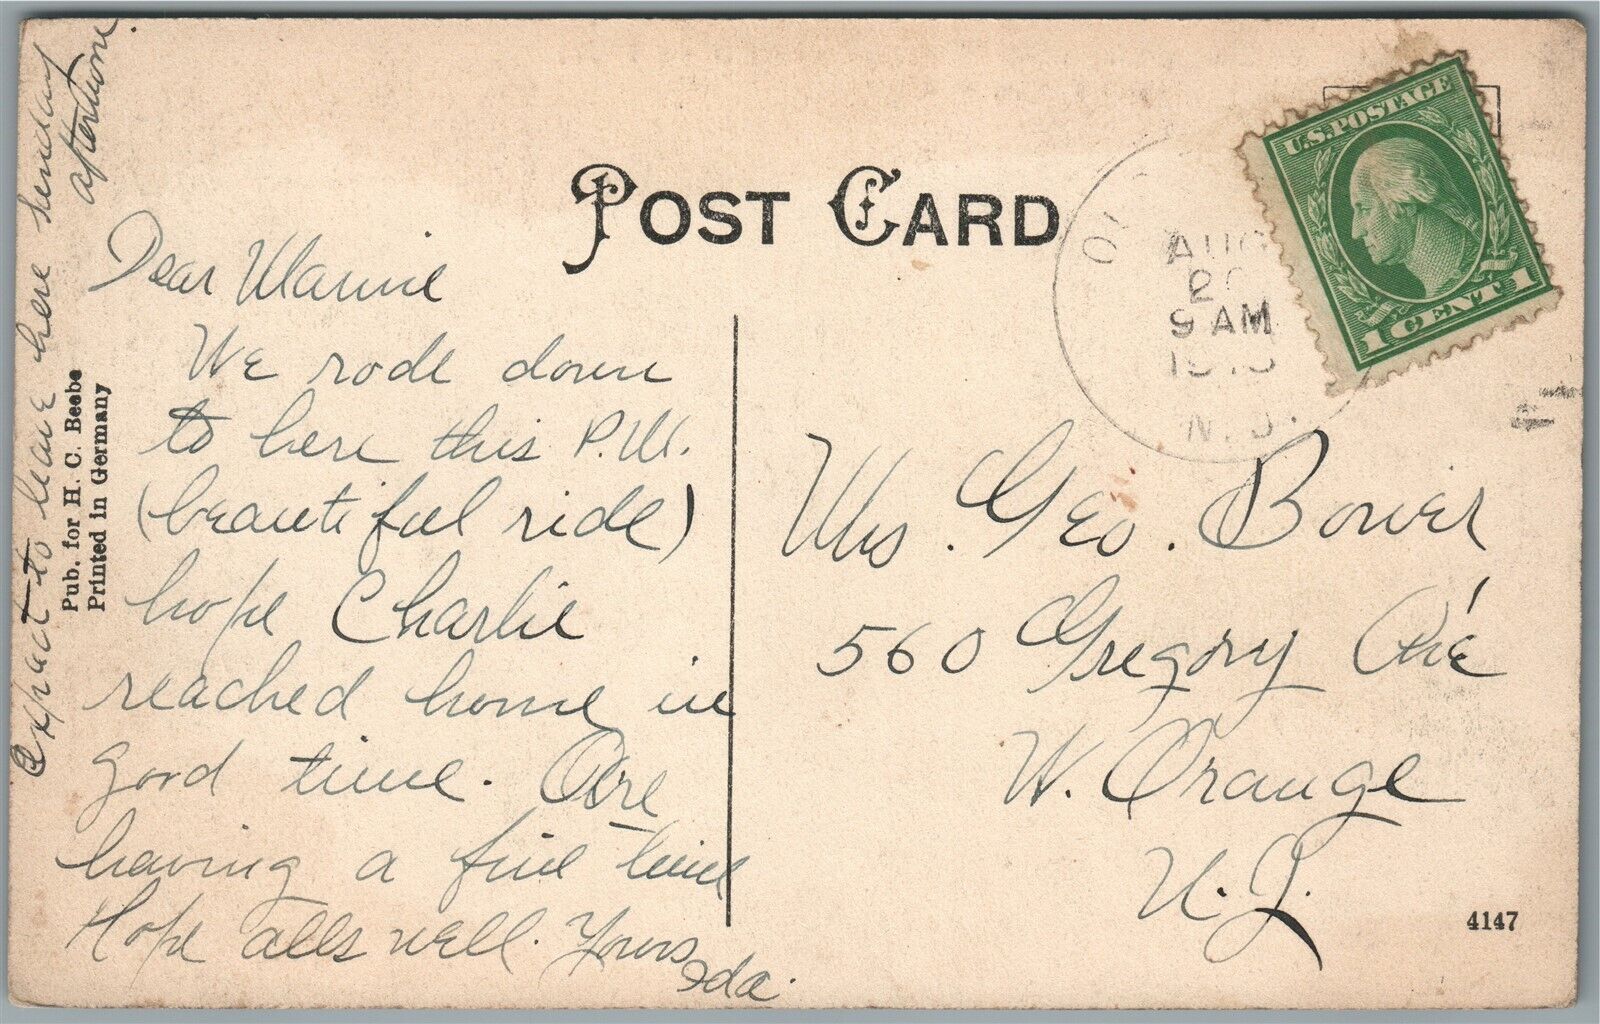 POST CARD
U.S. POSTAGE
1 CENT 1
AUG
9 AM
N.J.
Dear Mamie
We rode down
to here this P.M.
(beautiful ride)
hope Charlie
reached home in
good time. Are
having a fine time
Hope alls well. Yours
Ida.
Expect to leave here Sunday
afternoon.
Pub. for H. C. Beebe
Printed in Germany
Mrs. Geo. Bower
560 Gregory Ave
W. Orange
N. J.
4147